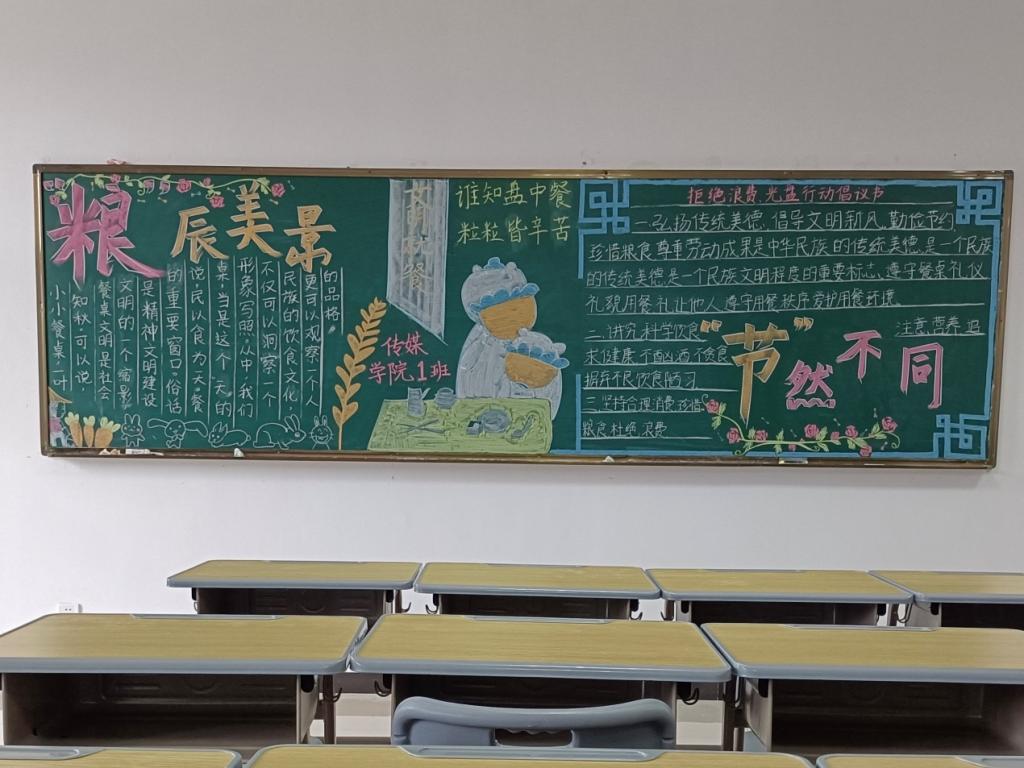 粮辰美景
小小餐桌一叶
知秋,可以说
餐桌文明是社会
文明的一个缩影
是精神文明建设
的重要窗口。俗话
说,民以食为天。餐
桌,当是这个“天”的
形象写照,从中,我们
不仅可以洞察一个
民族的饮食文化,
更可以观察一个人
的品格。
文明就餐
谁知盘中餐
粒粒皆辛苦
传媒
学院1班
拒绝浪费,光盘行动倡议书
一弘扬传统美德,倡导文明新风,勤俭节约,
珍惜粮食尊重劳动成果是中华民族的传统美德,是一个民族
的传统美德,是一个民族文明程度的重要标志、遵守餐桌礼仪
礼貌用餐礼让他人遵守用餐秩序爱护用餐环境。
二、讲究科学饮食 注意营养 追
求健康 不酗酒 不偏食
摒弃不良饮食陋习
三坚持合理消费珍惜
粮食杜绝浪费
“节”然不同